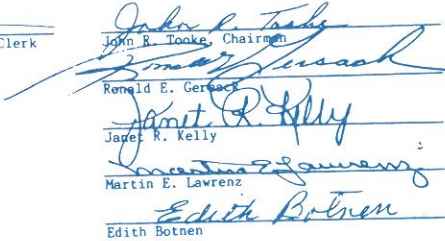 John R. Tooke
Clerk
John R. Tooke, Chairman
Ronald E. Gersack
Ronald E. Gersack
Janet R. Kelly
Janet R. Kelly
Martin E Lawrenz
Martin E. Lawrenz
Edith Botnen
Edith Botnen